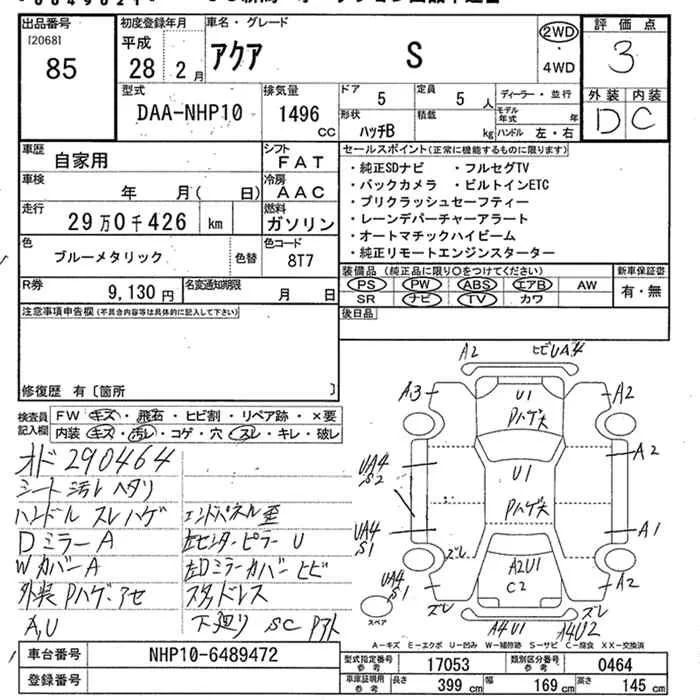 出品番号
[2068]
85
初度登録年月
平成
28 2月
車名・グレード
アクア S
2WD
・
4WD
評価点
3
外装 内装
D C
型式
DAA-NHP10
排気量
1496 cc
ドア
5
定員
5 人
形状
ハッチB
積載
kg
ディーラー・並行
モデル年式 年
ハンドル 左・右
車歴
自家用
シフト
FAT
車検
年 月( 日)
冷房
AAC
走行
29万0千426 km
燃料
ガソリン
色
ブルーメタリック
色替
色コード
8T7
R券
9,130 円
名変通知期限
月 日
セールスポイント(正常に機能するものに限ります)
・純正SDナビ ・フルセグTV
・バックカメラ ・ビルトインETC
・プリクラッシュセーフティー
・レーンデパーチャーアラート
・オートマチックハイビーム
・純正リモートエンジンスターター
装備品(純正品に限り〇をつけてください)
PS PW ABS エアB AW
SR ナビ TV カワ
新車保証書
有・無
後日品
注意事項申告欄(不具合内容等は具体的に記入して下さい)
修復歴 有〔箇所 〕
検査員記入欄
FW キズ・飛石・ヒビ割・リペア跡・×要
内装 キズ・汚レ・コゲ・穴・スレ・キレ・破レ
オド290464
シート汚レ ヘタリ
ハンドル スレ ハゲ
エンドパネル歪
DミラーA
左センターピラー U
WカバーA
左Dミラーカバー ヒビ
外装Pハゲ.アセ
スタッドレス
A,U
下廻り SC Pアト
A2
ヒビUA4
A3
U1
Pハゲ大
A2
UA4
S2
U1
A2
Pハゲ大
UA4
S1
A1
ズレ
A2U1
C2
ズレ
UA4
S1
ズレ
ズレ
A4U1
A4U2
スペア
A-キズ E-エクボ U-凹み W-補修跡 S-サビ C-腐食 XX-交換済
車台番号
NHP10-6489472
登録番号
型式指定番号
参考
17053
類別区分番号
参考
0464
車庫証明用
参考
長さ
399 cm
幅
169 cm
高さ
145 cm